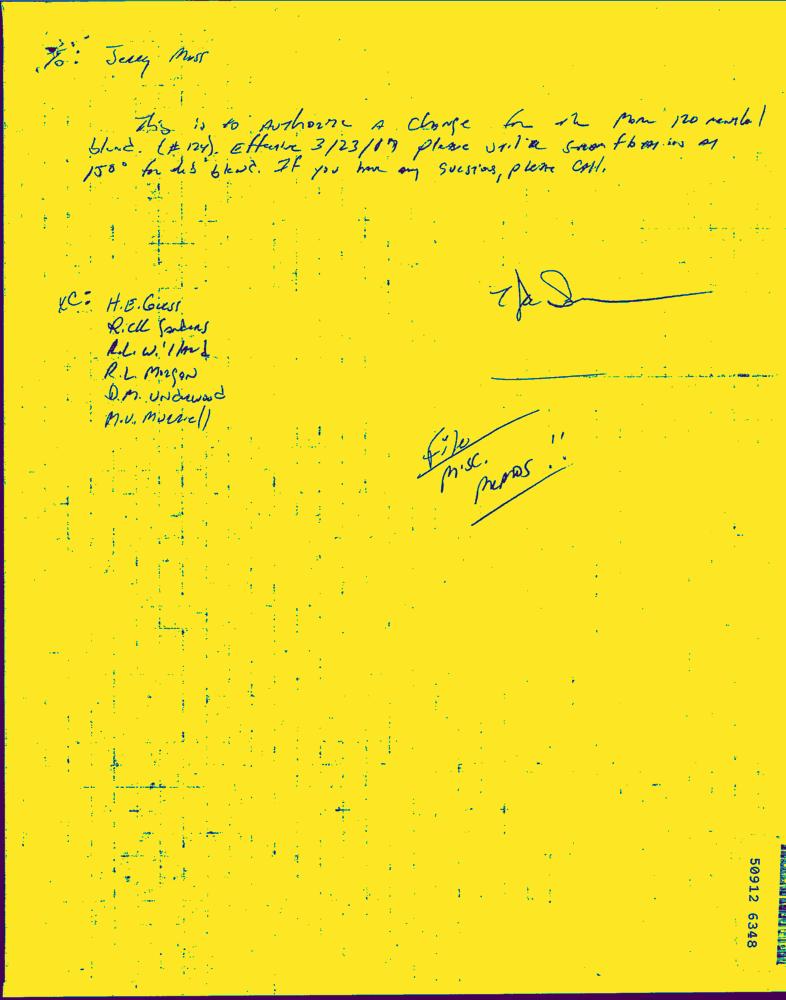 To: Jerry Moss
This is to Authorize A change for the More 120 menthol
blend. (#124). Effective 3/23/ please utilize steam at
150° for this blend. If you have any questions, please call.
XC: H.E. Guess
Rick Sanders
R.L. Willard
R.L. Morgan
D.M. Underwood
M.V.
File
Misc.
Memos !!
50912 6348